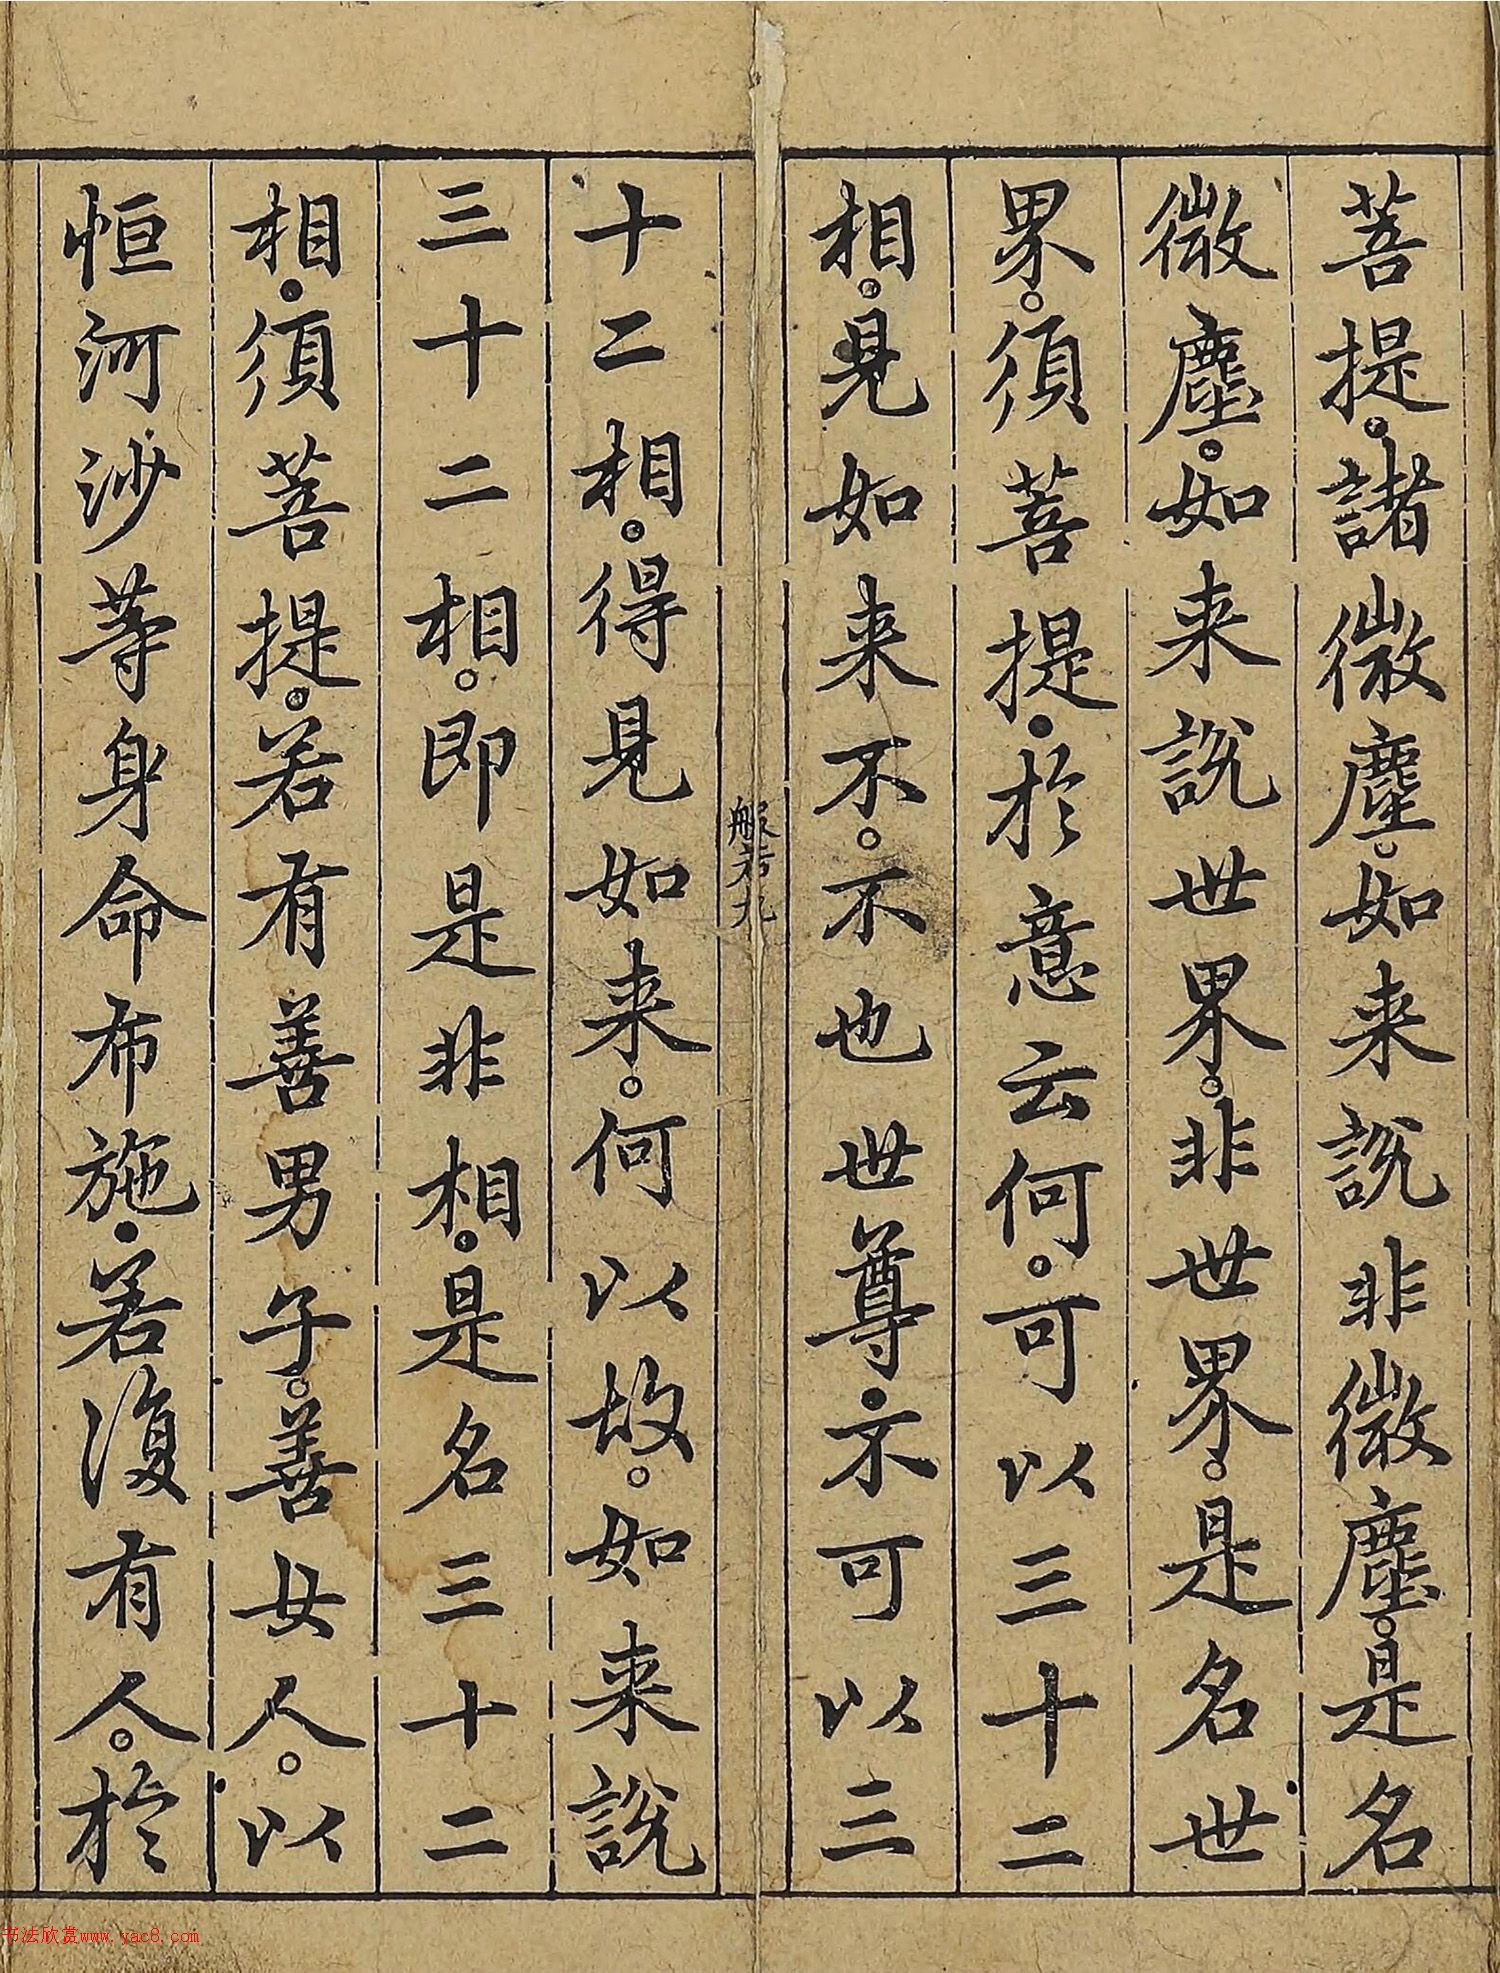 菩提。諸微塵。如来說非微塵。是名
微塵。如来說世界。非世界。是名世
界。須菩提。於意云何。可以三十二
相。見如来不。不也世尊。不可以三
般若九
十二相。得見如来。何以故。如来說
三十二相。即是非相。是名三十二
相。須菩提。若有善男子。善女人。以
恒河沙等身命布施。若復有人。於
书法欣赏www.yac8.com